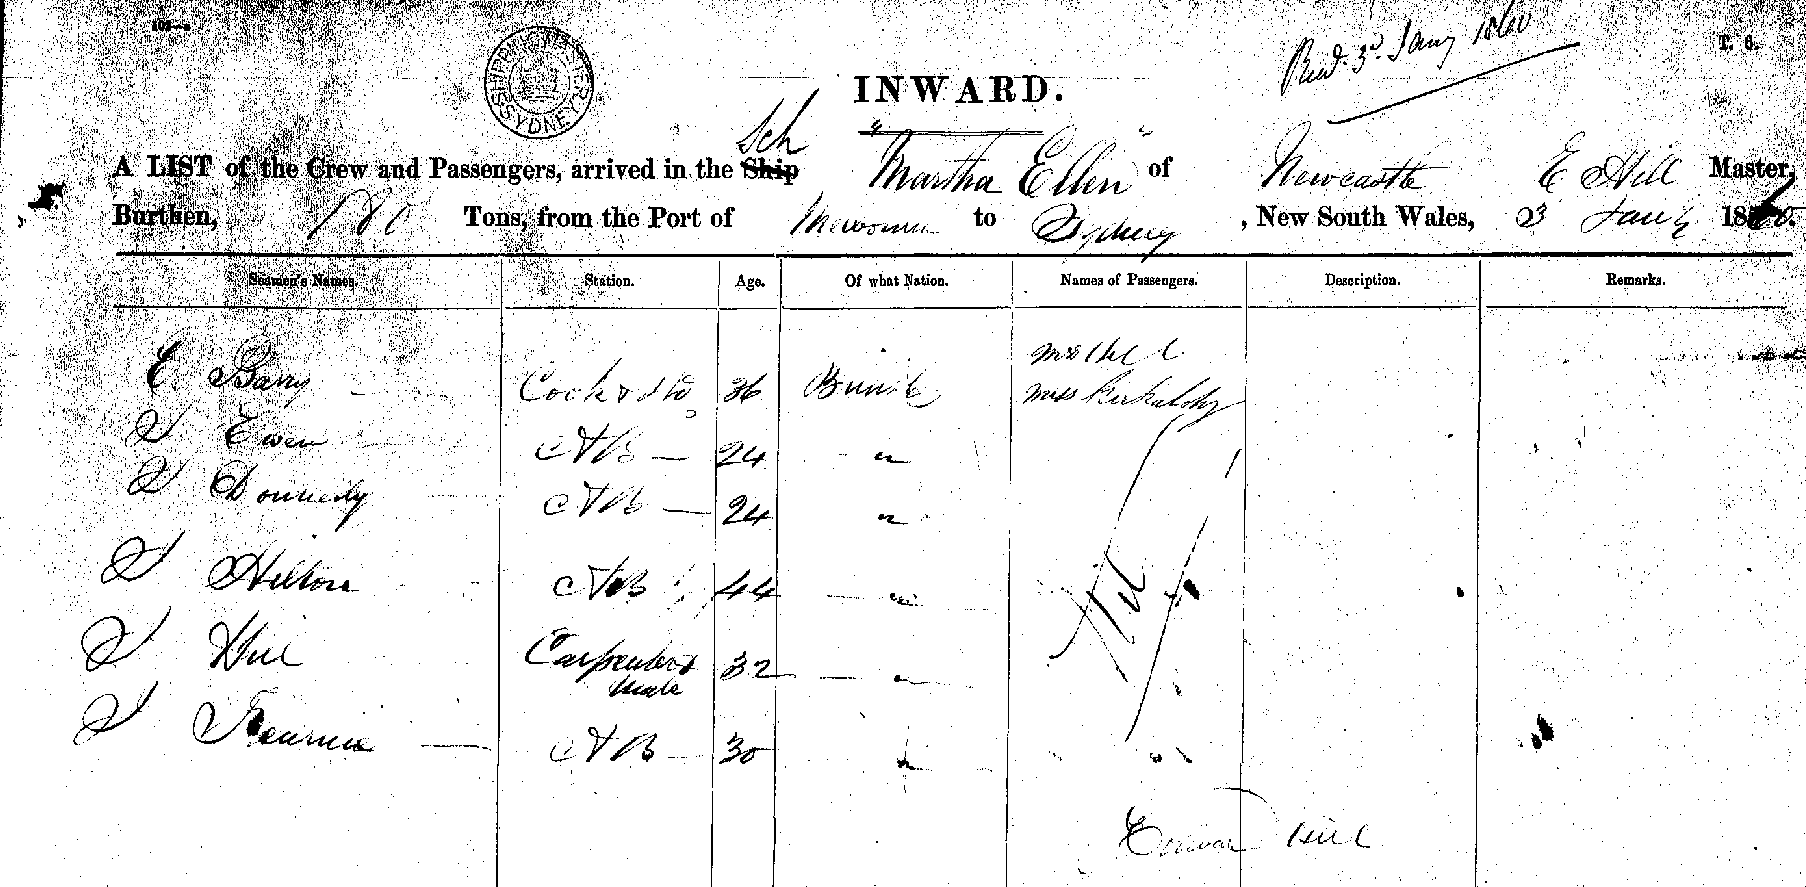 SHIPPING MASTER'S OFFICE SYDNEY
Recd. 3rd Jany 1860
T. 6.
INWARD.
Sch
A LIST of the Crew and Passengers, arrived in the Ship "Martha Ellen" of Newcastle E Hill Master,
Burthen, 180 Tons, from the Port of to Sydney, New South Wales, 3 Jany 1860.
Seamen's Names. Station. Age. Of what Nation. Names of Passengers. Description. Remarks.
E. Barry Cook & Std 36 British Miss Kirkaldy
J Ewen AB 24 "
J Donnely AB 24 "
J Hilton AB 44 "
J Hill Carpenter & 32 "
Mate
J AB 30 "
Nil
Edward Hill